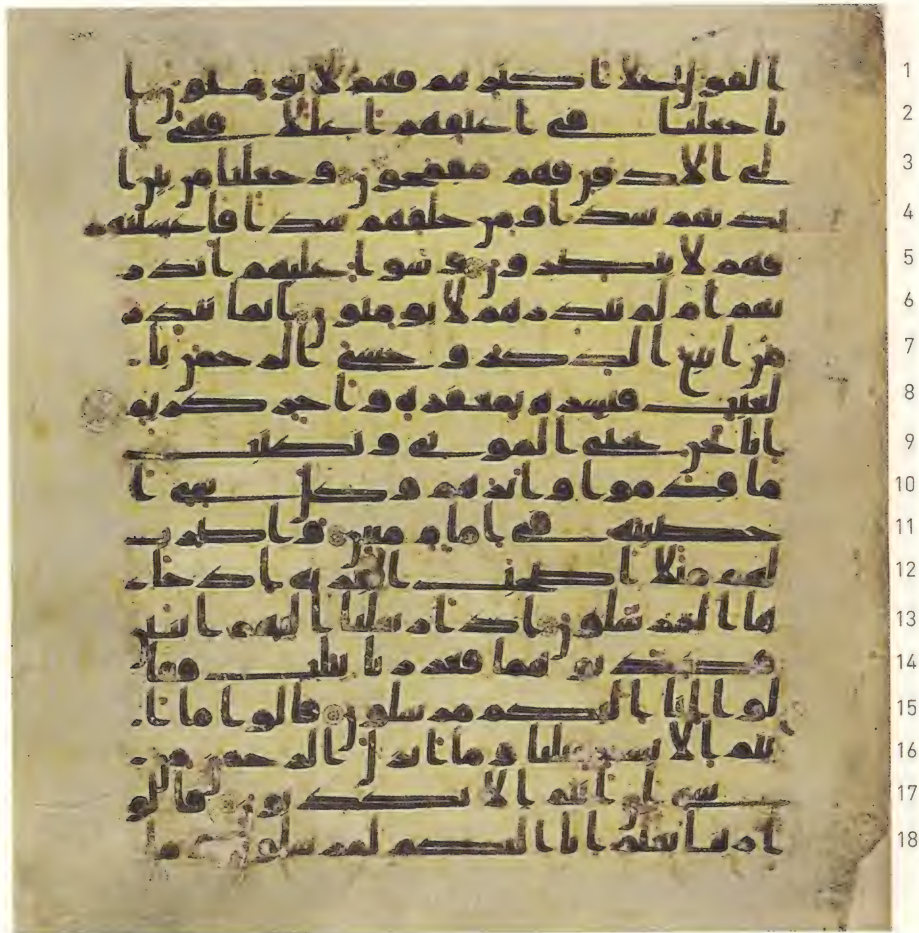 1 القول على اكثرهم فهم لا يومنون ا
2 نا جعلنا في اعنقهم اغللا فهي ا
3 لى الاذقن فهم مقمحون وجعلنا من بين ا
4 يديهم سدا ومن خلفهم سدا فاغشينهم
5 فهم لا يبصرون وسوا عليهم انذر
6 تهم ام لم تنذرهم لا يومنون انما تنذر
7 من اتبع الذكر وخشي الرحمن با
8 لغيب فبشره بمغفرة واجر كريم
9 انا نحن نحي الموتى ونكتب
10 ما قدموا واثرهم وكل شي ا
11 حصينه في امام مبين واضرب
12 لهم مثلا اصحب القرية اذ جا
13 ها المرسلون اذ ارسلنا اليهم اثنين
14 فكذبوهما فعززنا بثلث فقا
15 لوا انا اليكم مرسلون قالوا ما ا
16 نتم الا بشر مثلنا وما انزل الرحمن من
17 شي ان انتم الا تكذبون قالو
18 ا ربنا يعلم انا اليكم لمرسلون وما